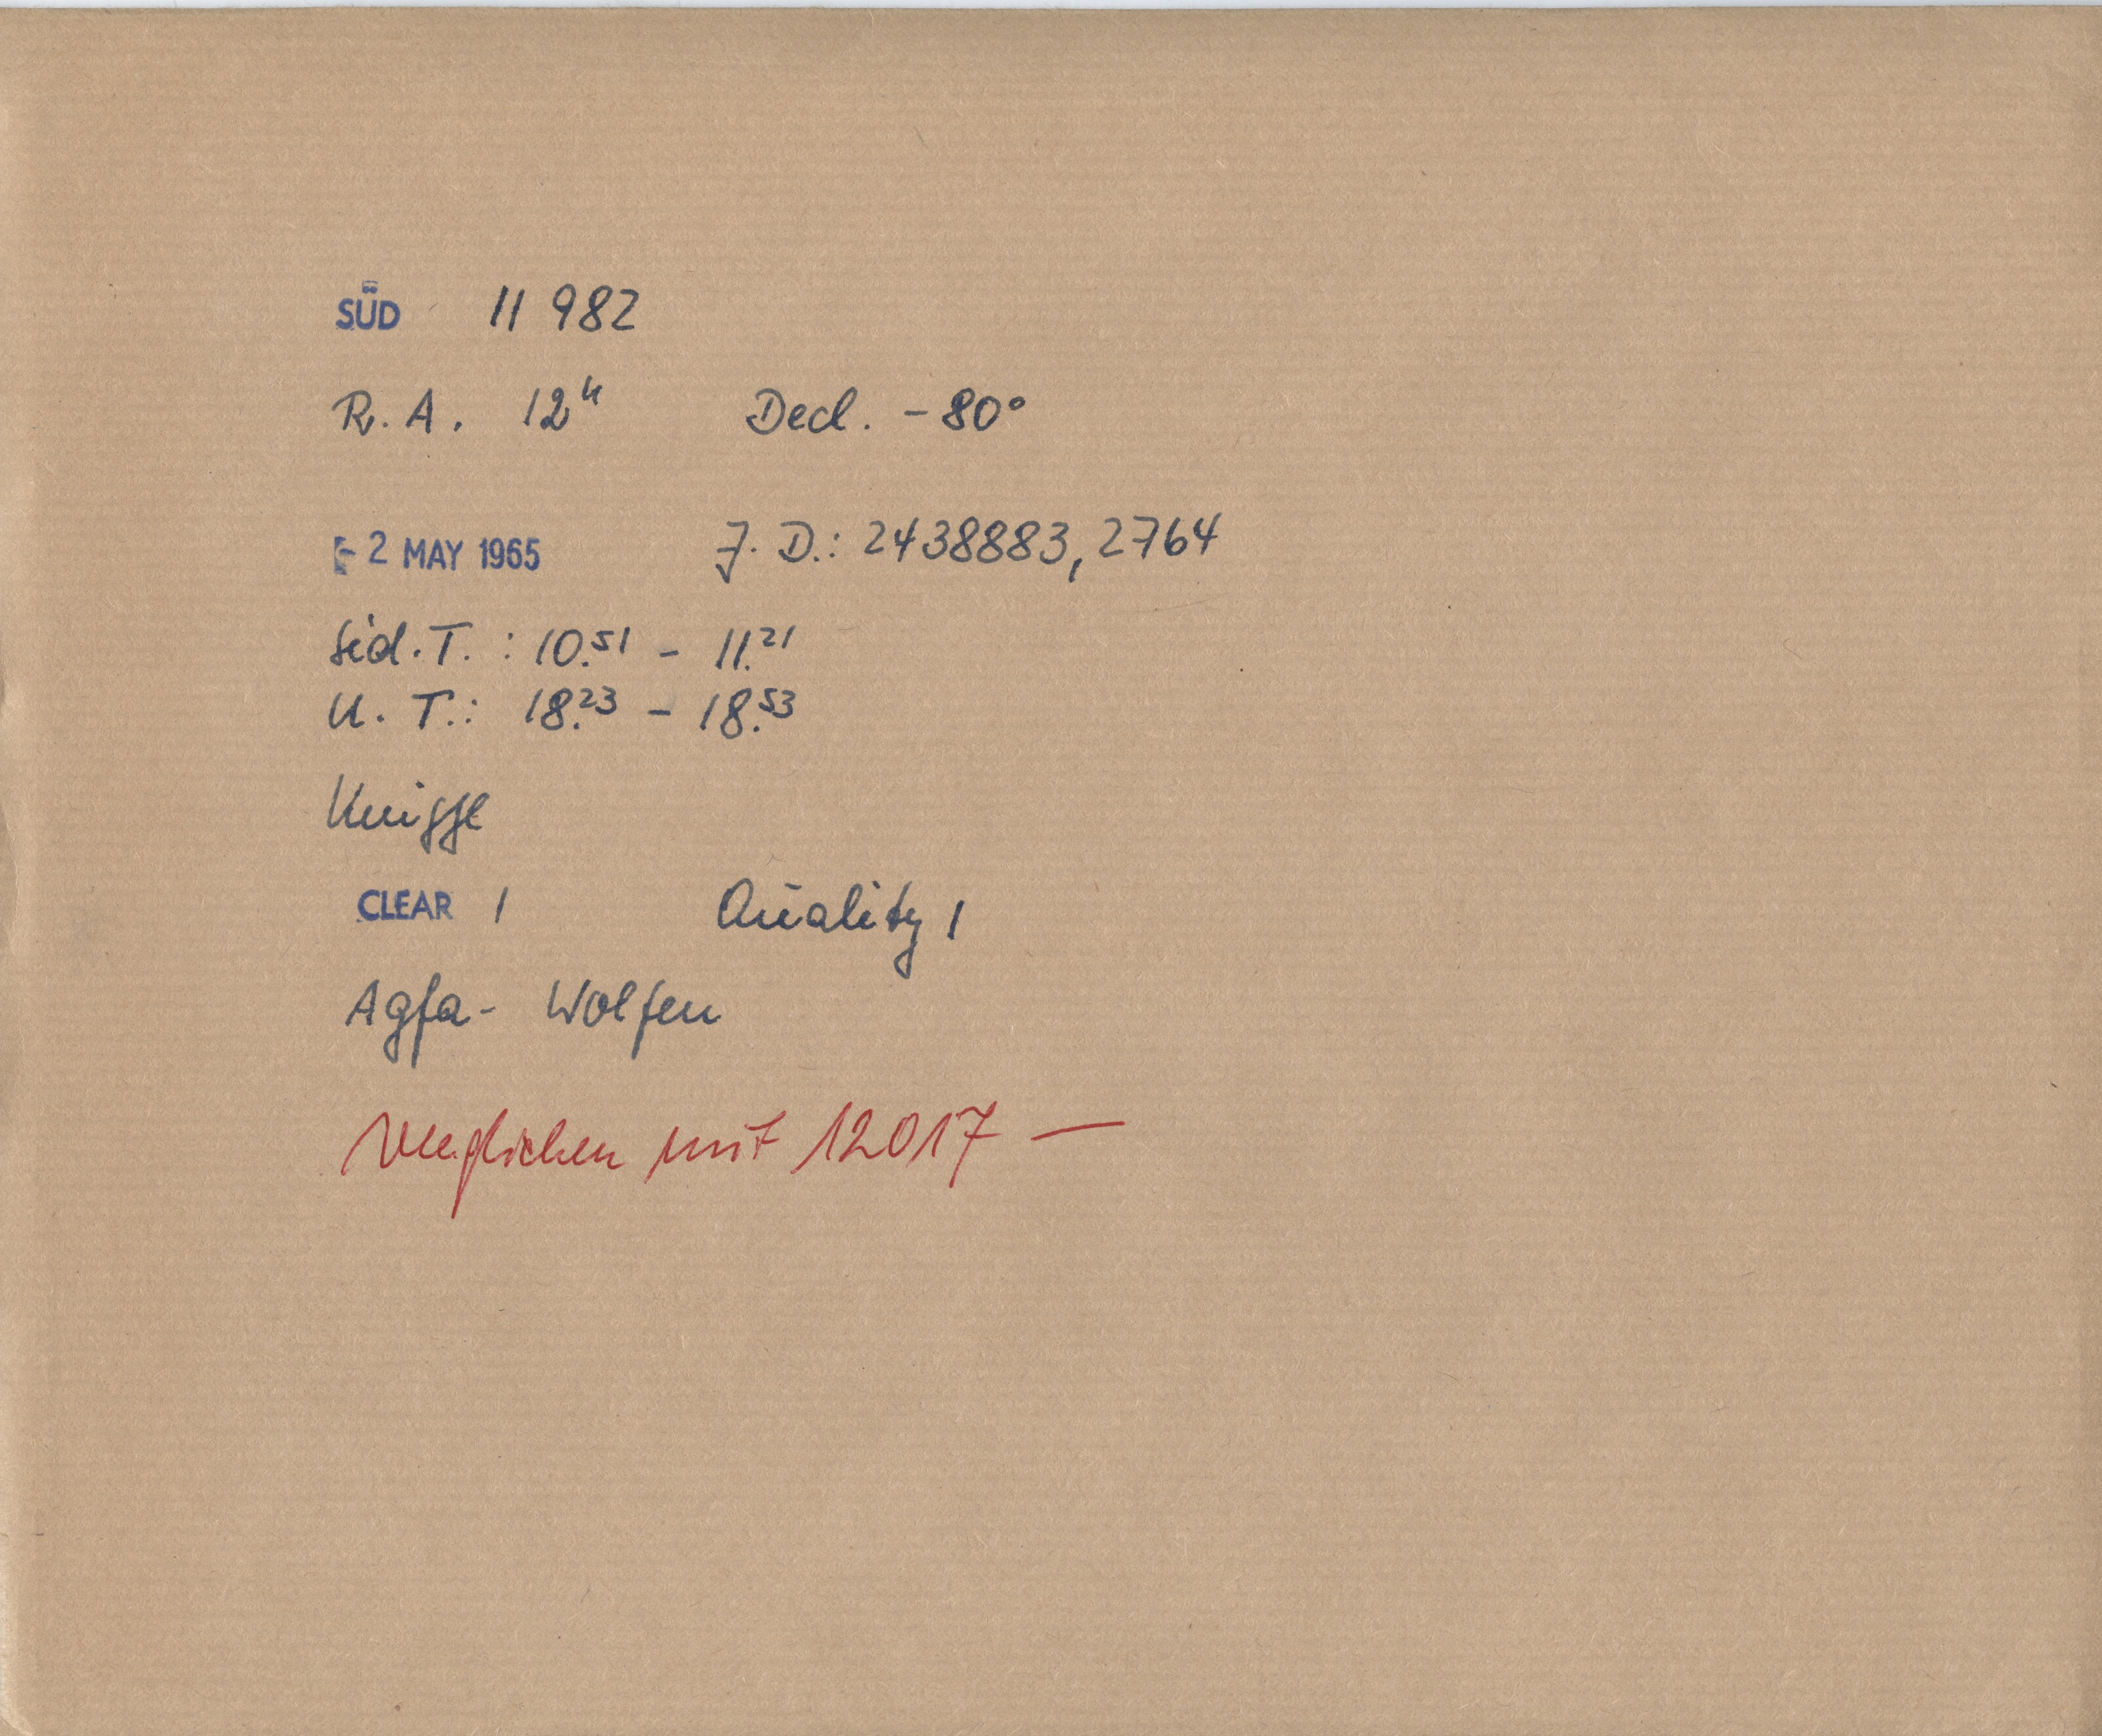 SÜD 11 982
R. A. 12h Decl. - 80°
- 2 MAY 1965 J. D.: 2438883,2764
Sid. T. : 10.51 - 11.21
U. T.: 18.23 - 18.53
Knigge
CLEAR 1 Quality 1
Agfa- Wolfen
Verglichen mit 12017 —